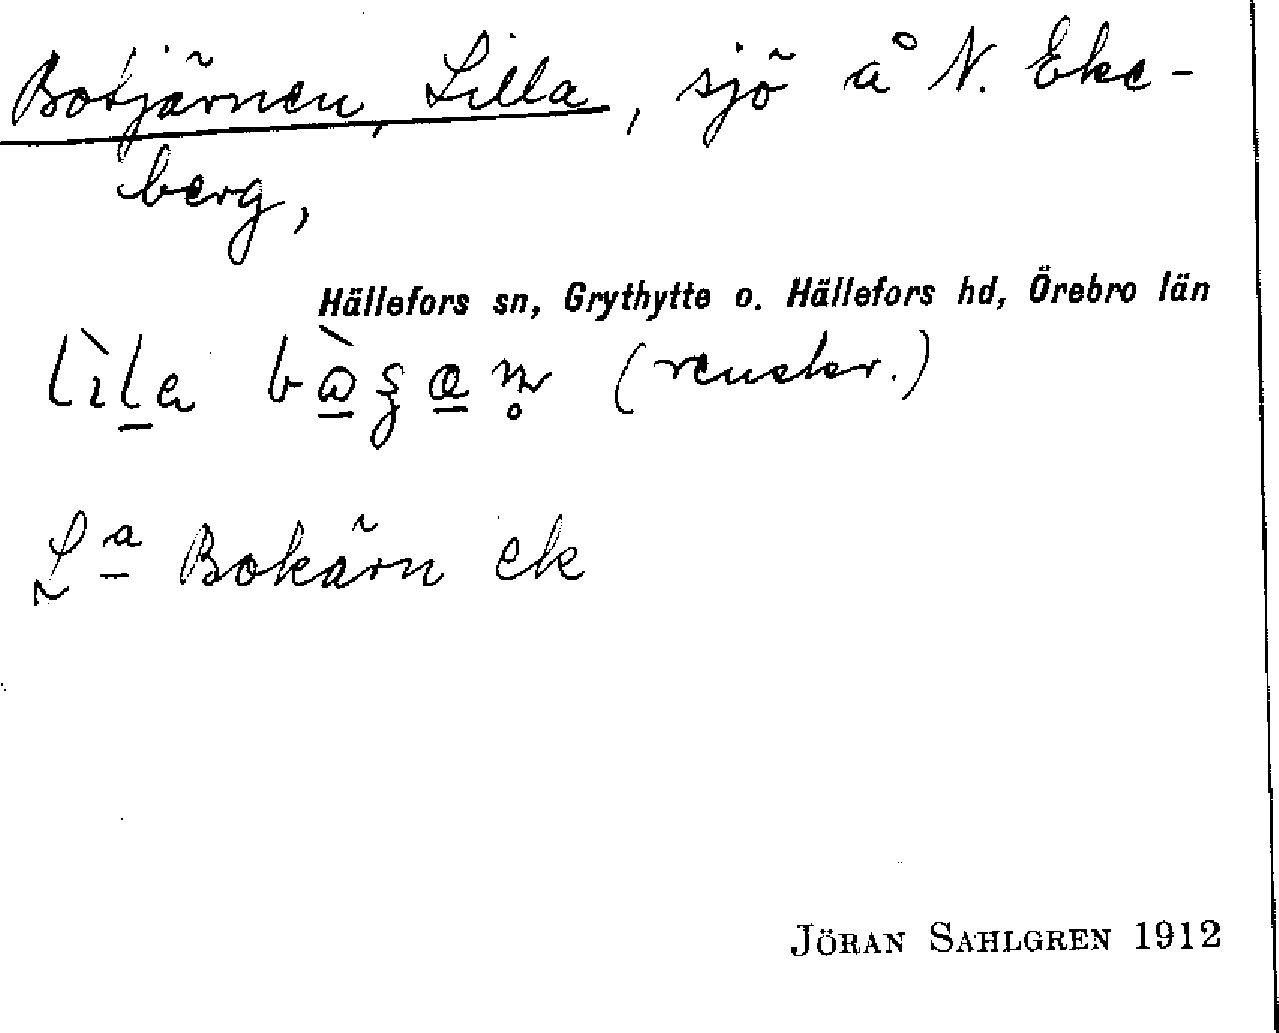 Botjärnen, Lilla, sjö å N. Eke-
berg,
Hällefors sn, Grythytte o. Hällefors hd, Örebro län
(renskr.)
L:a Bokärn ek
JÖRAN SAHLGREN 1912